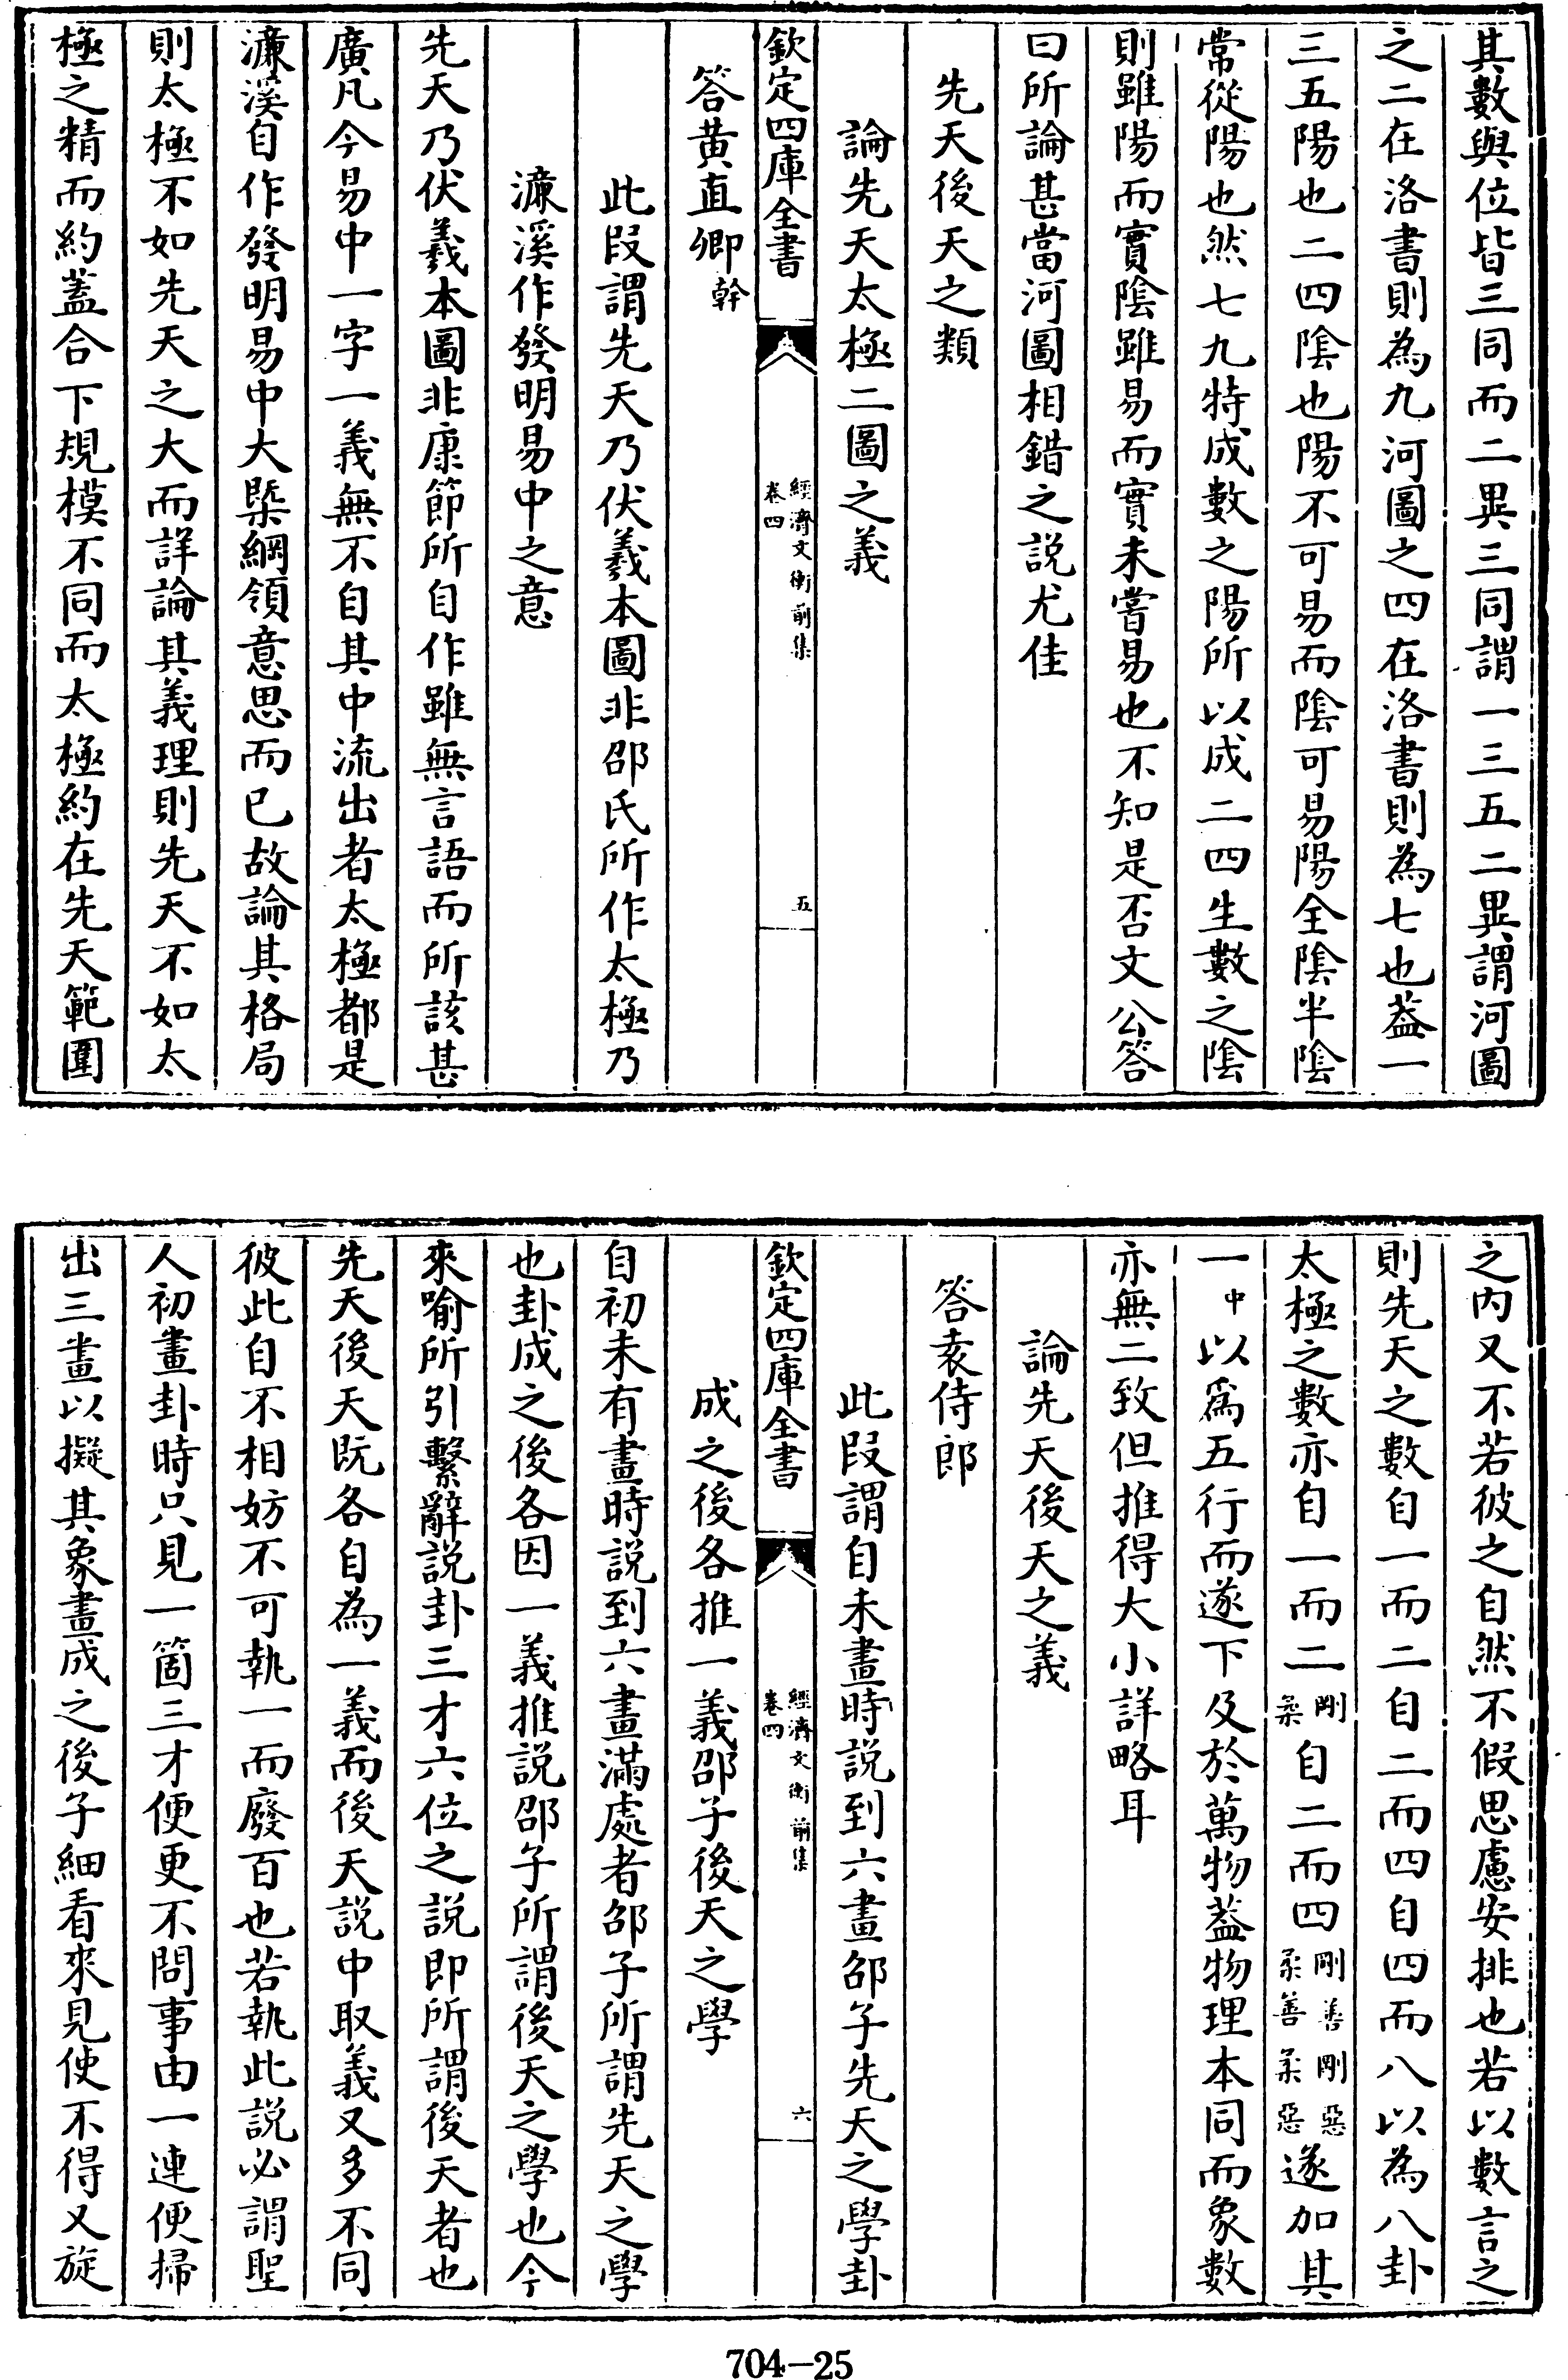 其數與位皆三同而二異三同謂一三五二異謂河圖
之二在洛書則為九河圖之四在洛書則為七也蓋一
三五陽也二四陰也陽不可易而陰可易陽全陰半陰
常從陽也然七九特成數之陽所以成二四生數之陰
則雖陽而實陰雖易而實未嘗易也不知是否文公答
曰所論甚當河圖相錯之説尤佳
先天後天之類
論先天太極二圖之義
欽定四庫全書
經濟文衡前集
卷四
五
答黄直卿幹
此段謂先天乃伏羲本圖非邵氏所作太極乃
濂溪作發明易中之意
先天乃伏羲本圖非康節所自作雖無言語而所該甚
廣凡今易中一字一義無不自其中流出者太極都是
濂溪自作發明易中大槩綱領意思而已故論其格局
則太極不如先天之大而詳論其義理則先天不如太
極之精而約蓋合下規模不同而太極約在先天範圍
之内又不若彼之自然不假思慮安排也若以數言之
則先天之數自一而二自二而四自四而八以為八卦
太極之數亦自一而二剛柔自二而四剛善剛惡柔善柔惡遂加其
一中以爲五行而遂下及於萬物蓋物理本同而象數
亦無二致但推得大小詳略耳
論先天後天之義
答袁侍郎
此段謂自未畫時説到六畫邵子先天之學卦
欽定四庫全書
經濟文衡前集
卷四
六
成之後各推一義邵子後天之學
自初未有畫時説到六畫滿處者邵子所謂先天之學
也卦成之後各因一義推説邵子所謂後天之學也今
來喻所引繫辭説卦三才六位之説即所謂後天者也
先天後天既各自為一義而後天説中取義又多不同
彼此自不相妨不可執一而廢百也若執此説必謂聖
人初畫卦時只見一箇三才便更不問事由一連便掃
出三畫以擬其象畫成之後子細看來見使不得又旋
704—25